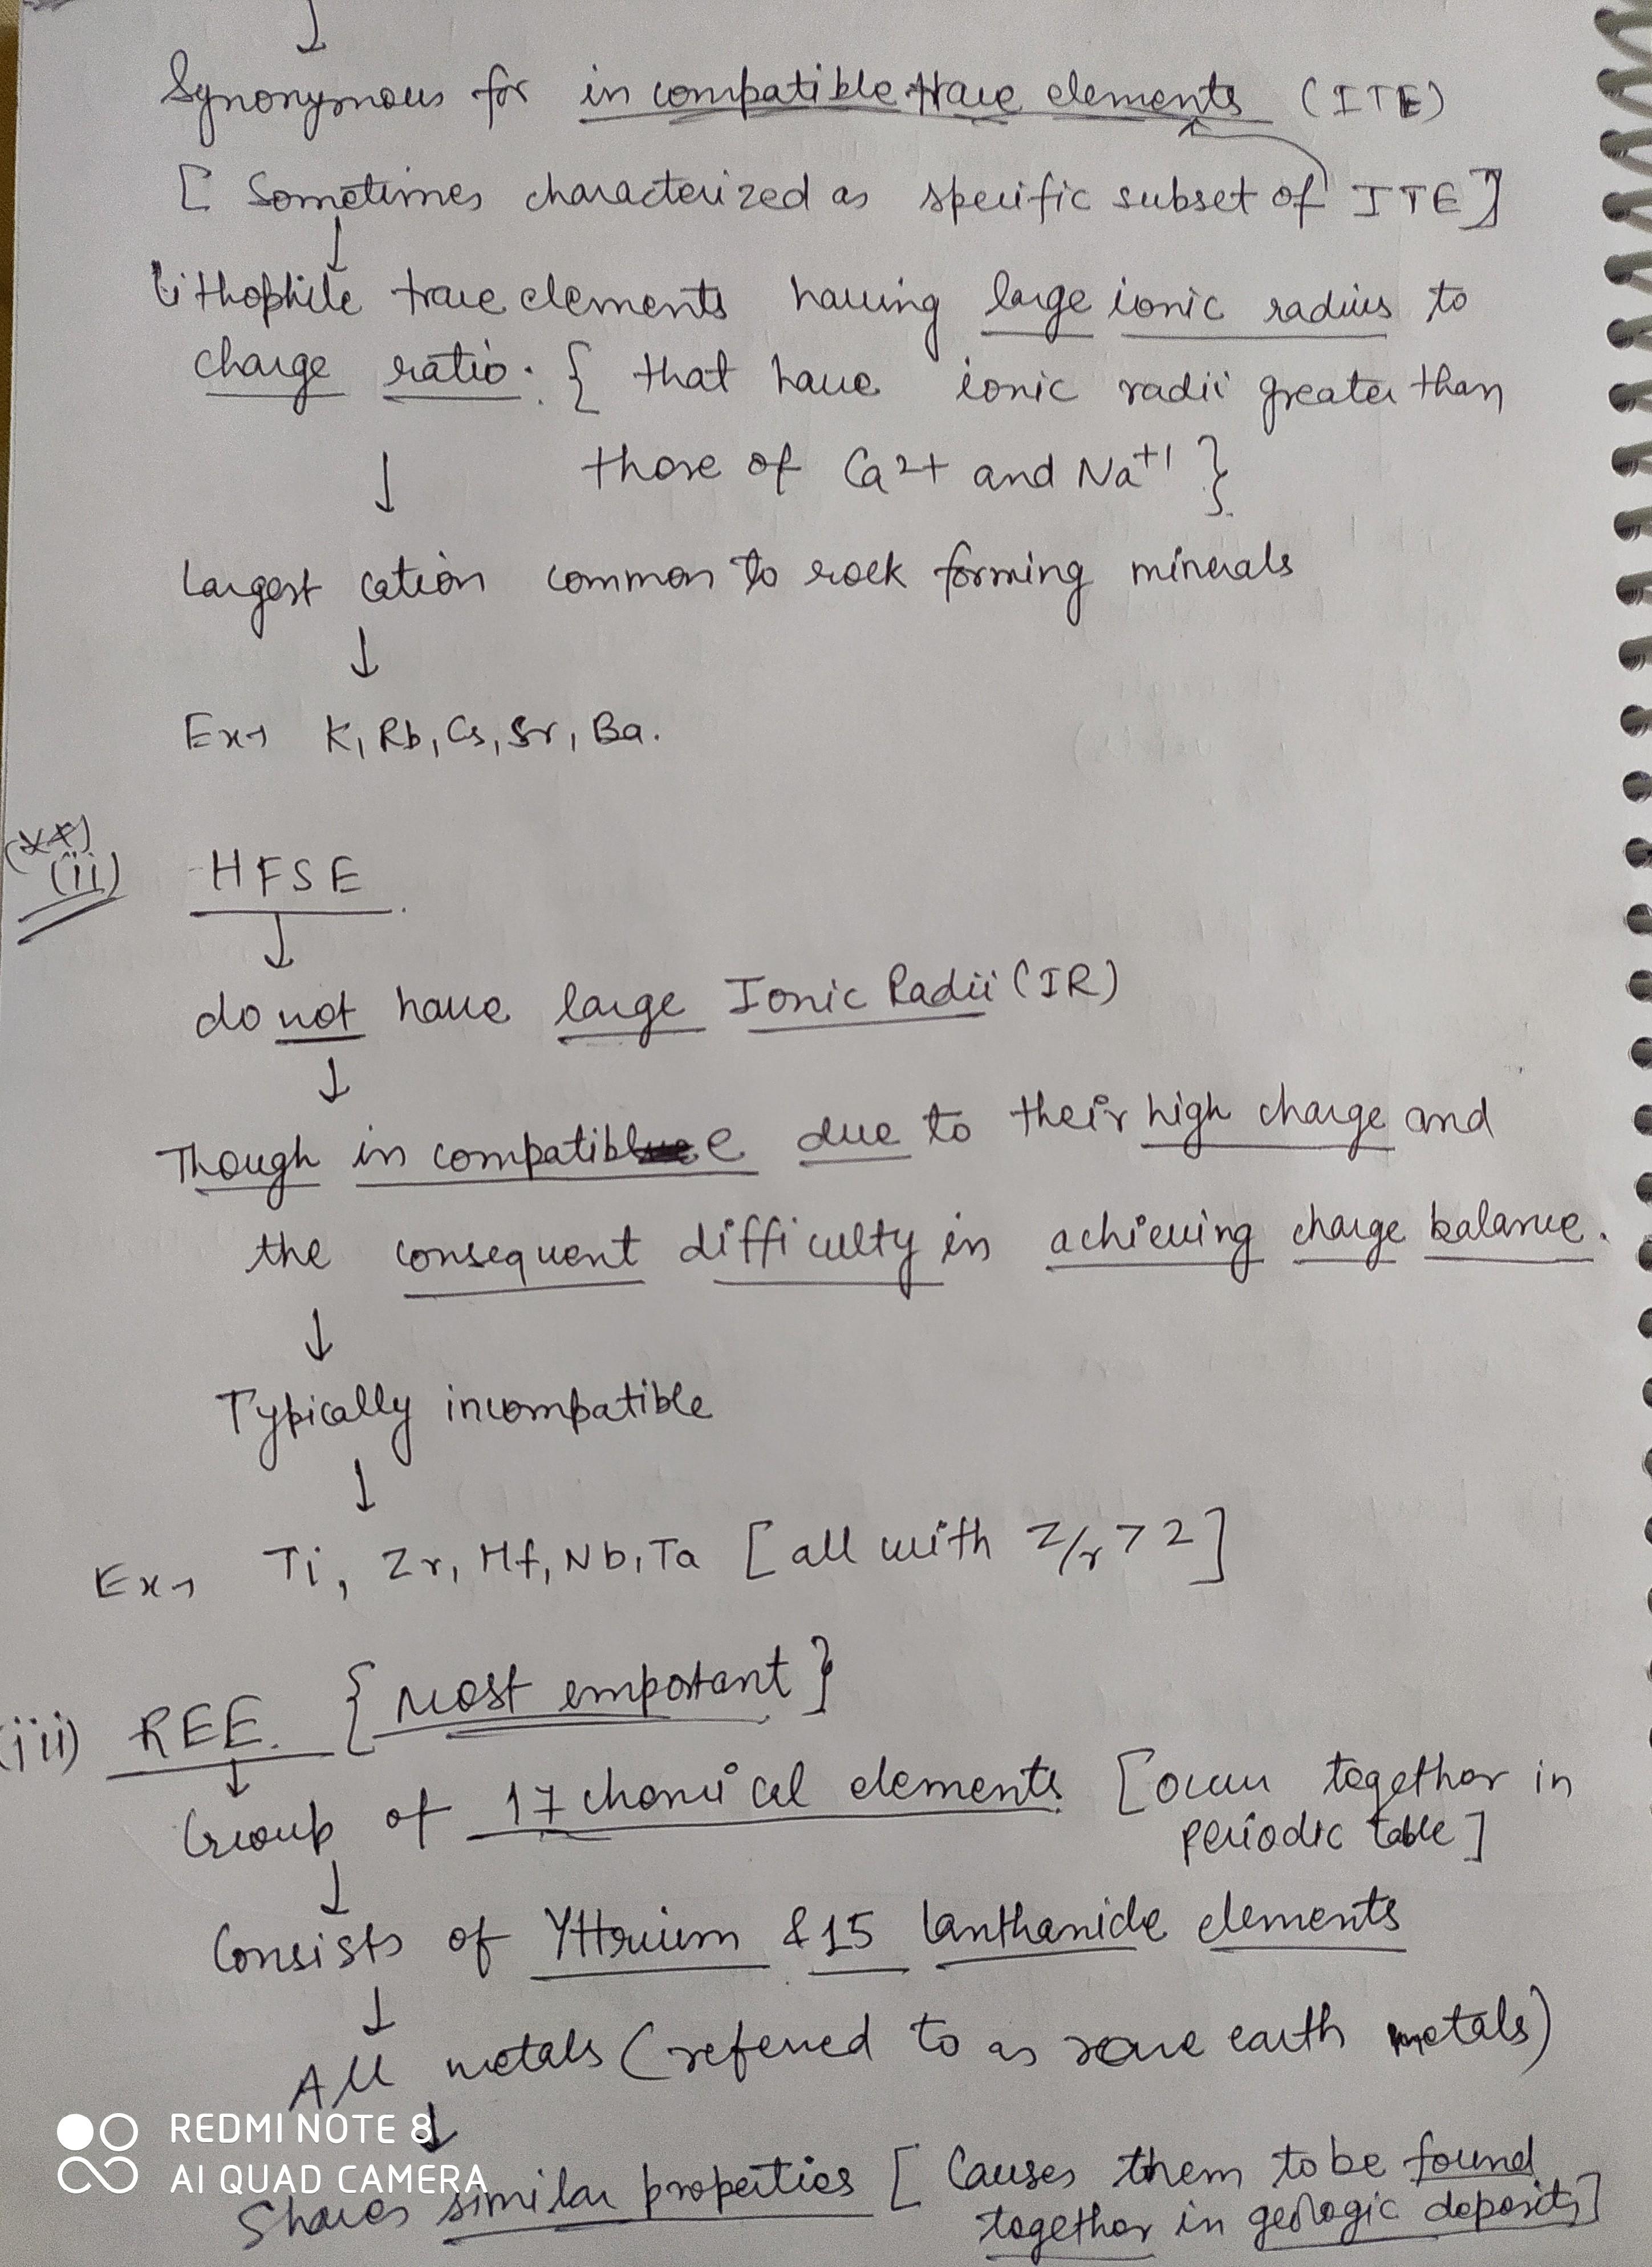 ↓
Synonymous for incompatible trace elements (ITE)
[ Sometimes characterized as specific subset of ITE ]
↓
lithophile trace elements having large ionic radius to
charge ratio. { that have ionic radii greater than
those of Ca2+ and Na+1 }
↓
Largest cation common to rock forming minerals
↓
Ex→ K, Rb, Cs, Sr, Ba.
(ii) HFSE
↓
do not have large Ionic Radii (IR)
↓
Though incompatible due to their high charge and
the consequent difficulty in achieving charge balance.
↓
Typically incompatible
↓
Ex→ Ti, Zr, Hf, Nb, Ta [ all with Z/r > 2 ]
(iii) REE. { Most emportant }
↓
Group of 17 chemical elements [ occur together in
periodic table ]
↓
Consists of Yttrium & 15 lanthanide elements
↓
All metals ( referred to as rare earth metals )
↓
REDMI NOTE 8
AI QUAD CAMERA
Shares similar properties [ Causes them to be found
together in geologic deposits ]